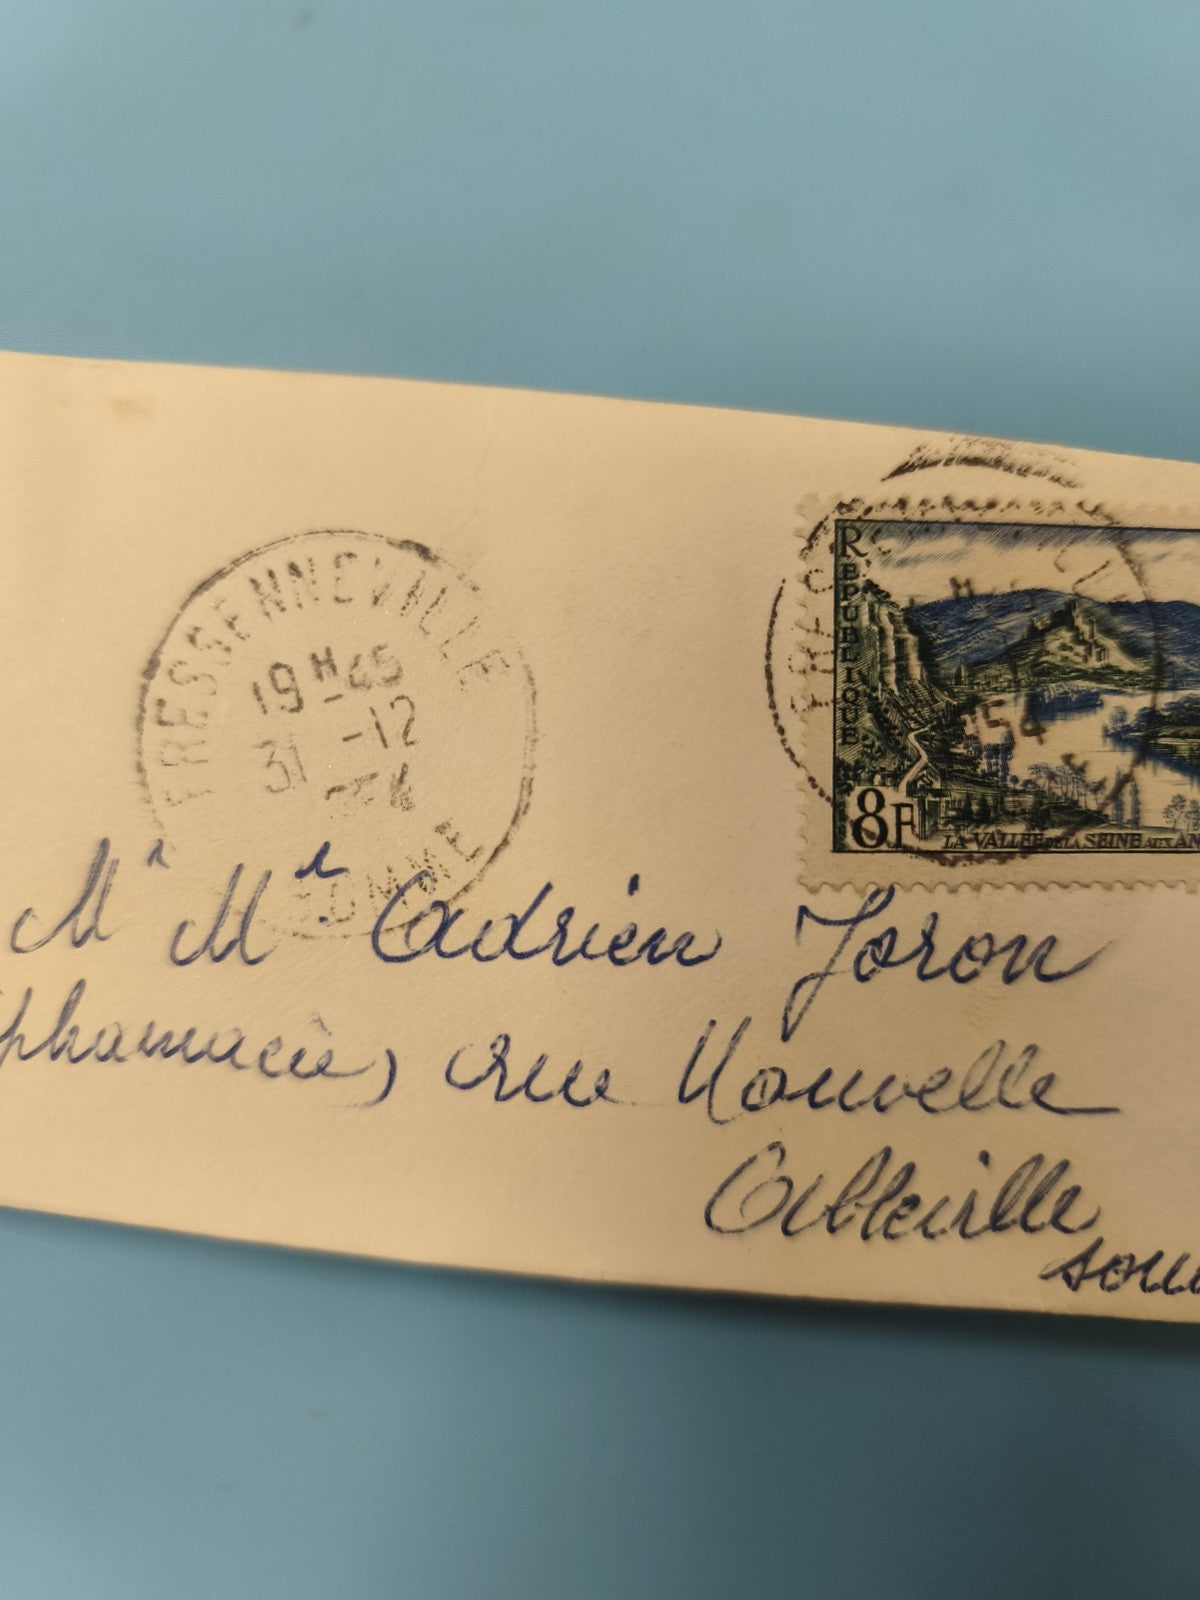 FRESSENNEVILLE
19 H 45
31 -12
1954
SOMME
REPUBLIQUE
8F
LA VALLEE DE LA SEINE AUX AN
54
Mr Mt Adrien Joron
pharmacie, rue Nouvelle
Abbeville